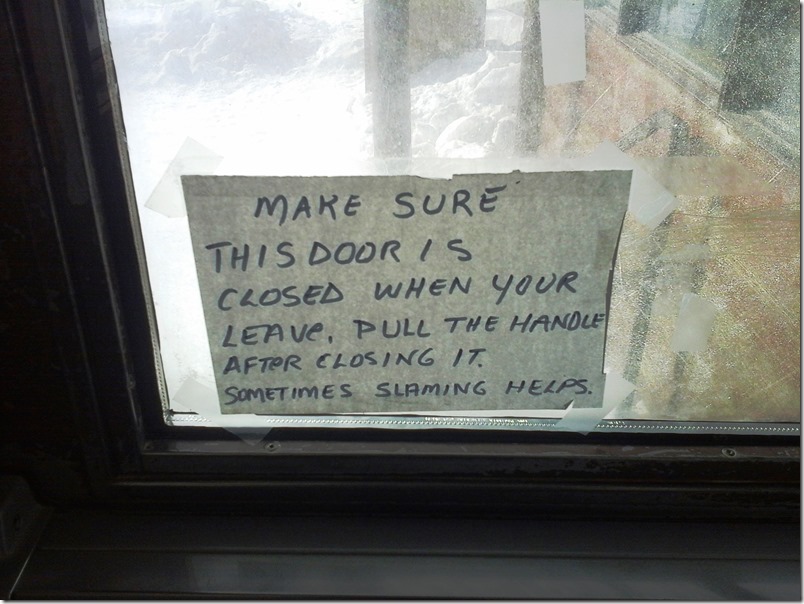 MAKE SURE
THIS DOOR IS
CLOSED WHEN YOUR
LEAVE, PULL THE HANDLE
AFTER CLOSING IT.
SOMETIMES SLAMING HELPS.